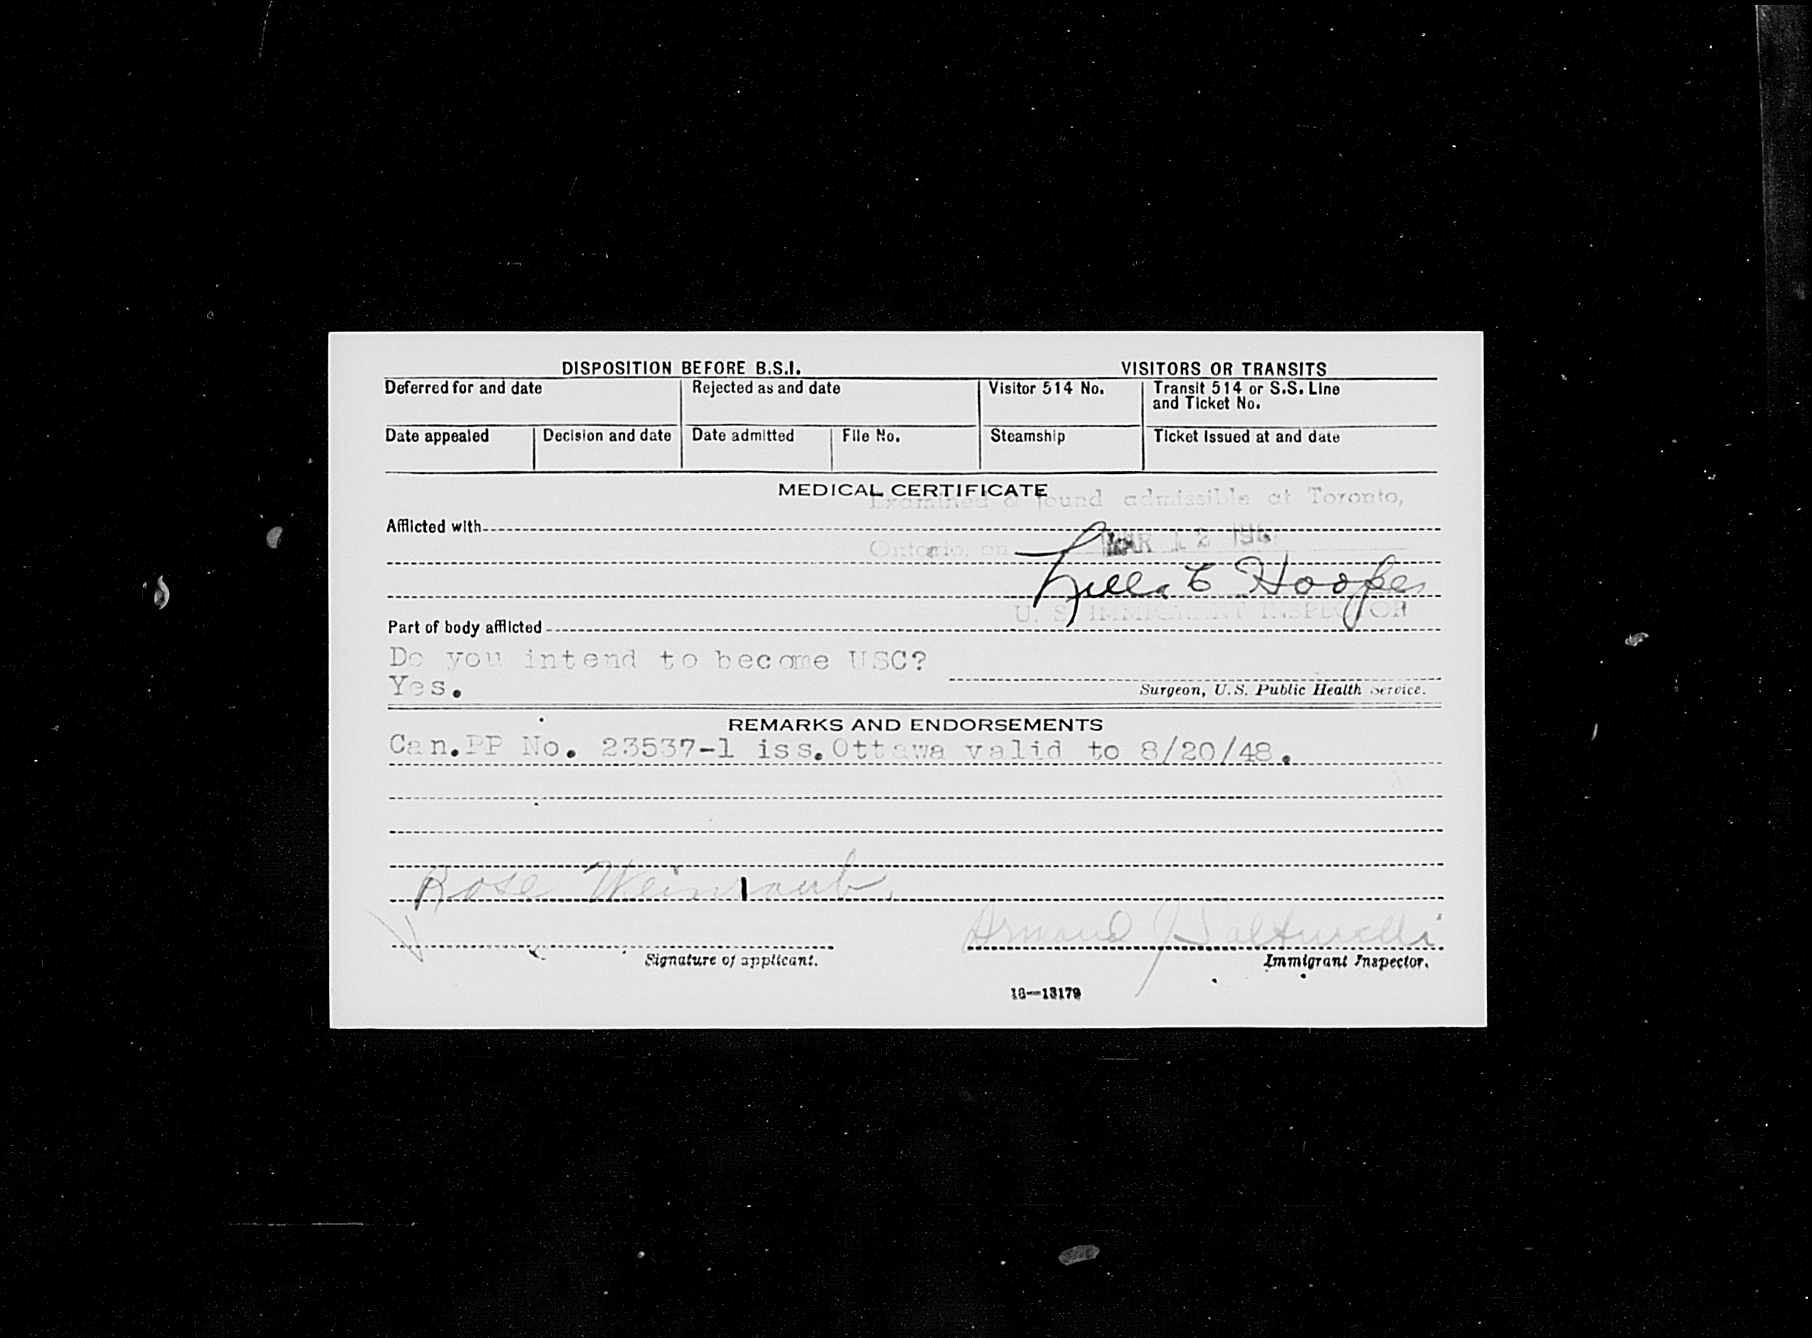 DISPOSITION BEFORE B.S.I.
VISITORS OR TRANSITS
Deferred for and date
Rejected as and date
Visitor 514 No.
Transit 514 or S.S. Line
and Ticket No.
Date appealed
Decision and date
Date admitted
File No.
Steamship
Ticket issued at and date
MEDICAL CERTIFICATE
Examined & found admissible at Toronto,
Afflicted with
Ontario, on MAR 12
Hooper
U. S. IMMIGRANT INSPECTOR
Part of body afflicted
Do you intend to become USC?
Yes.
Surgeon, U.S. Public Health Service.
REMARKS AND ENDORSEMENTS
Can.PP No. 23537-1 iss.Ottawa valid to 8/20/48.
Rose Weintraub
Armand J
Signature of applicant.
Immigrant Inspector.
16—13179